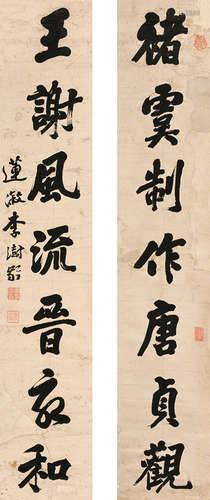 褚虞制作唐貞觀
王謝風流晉永和
蓮 李